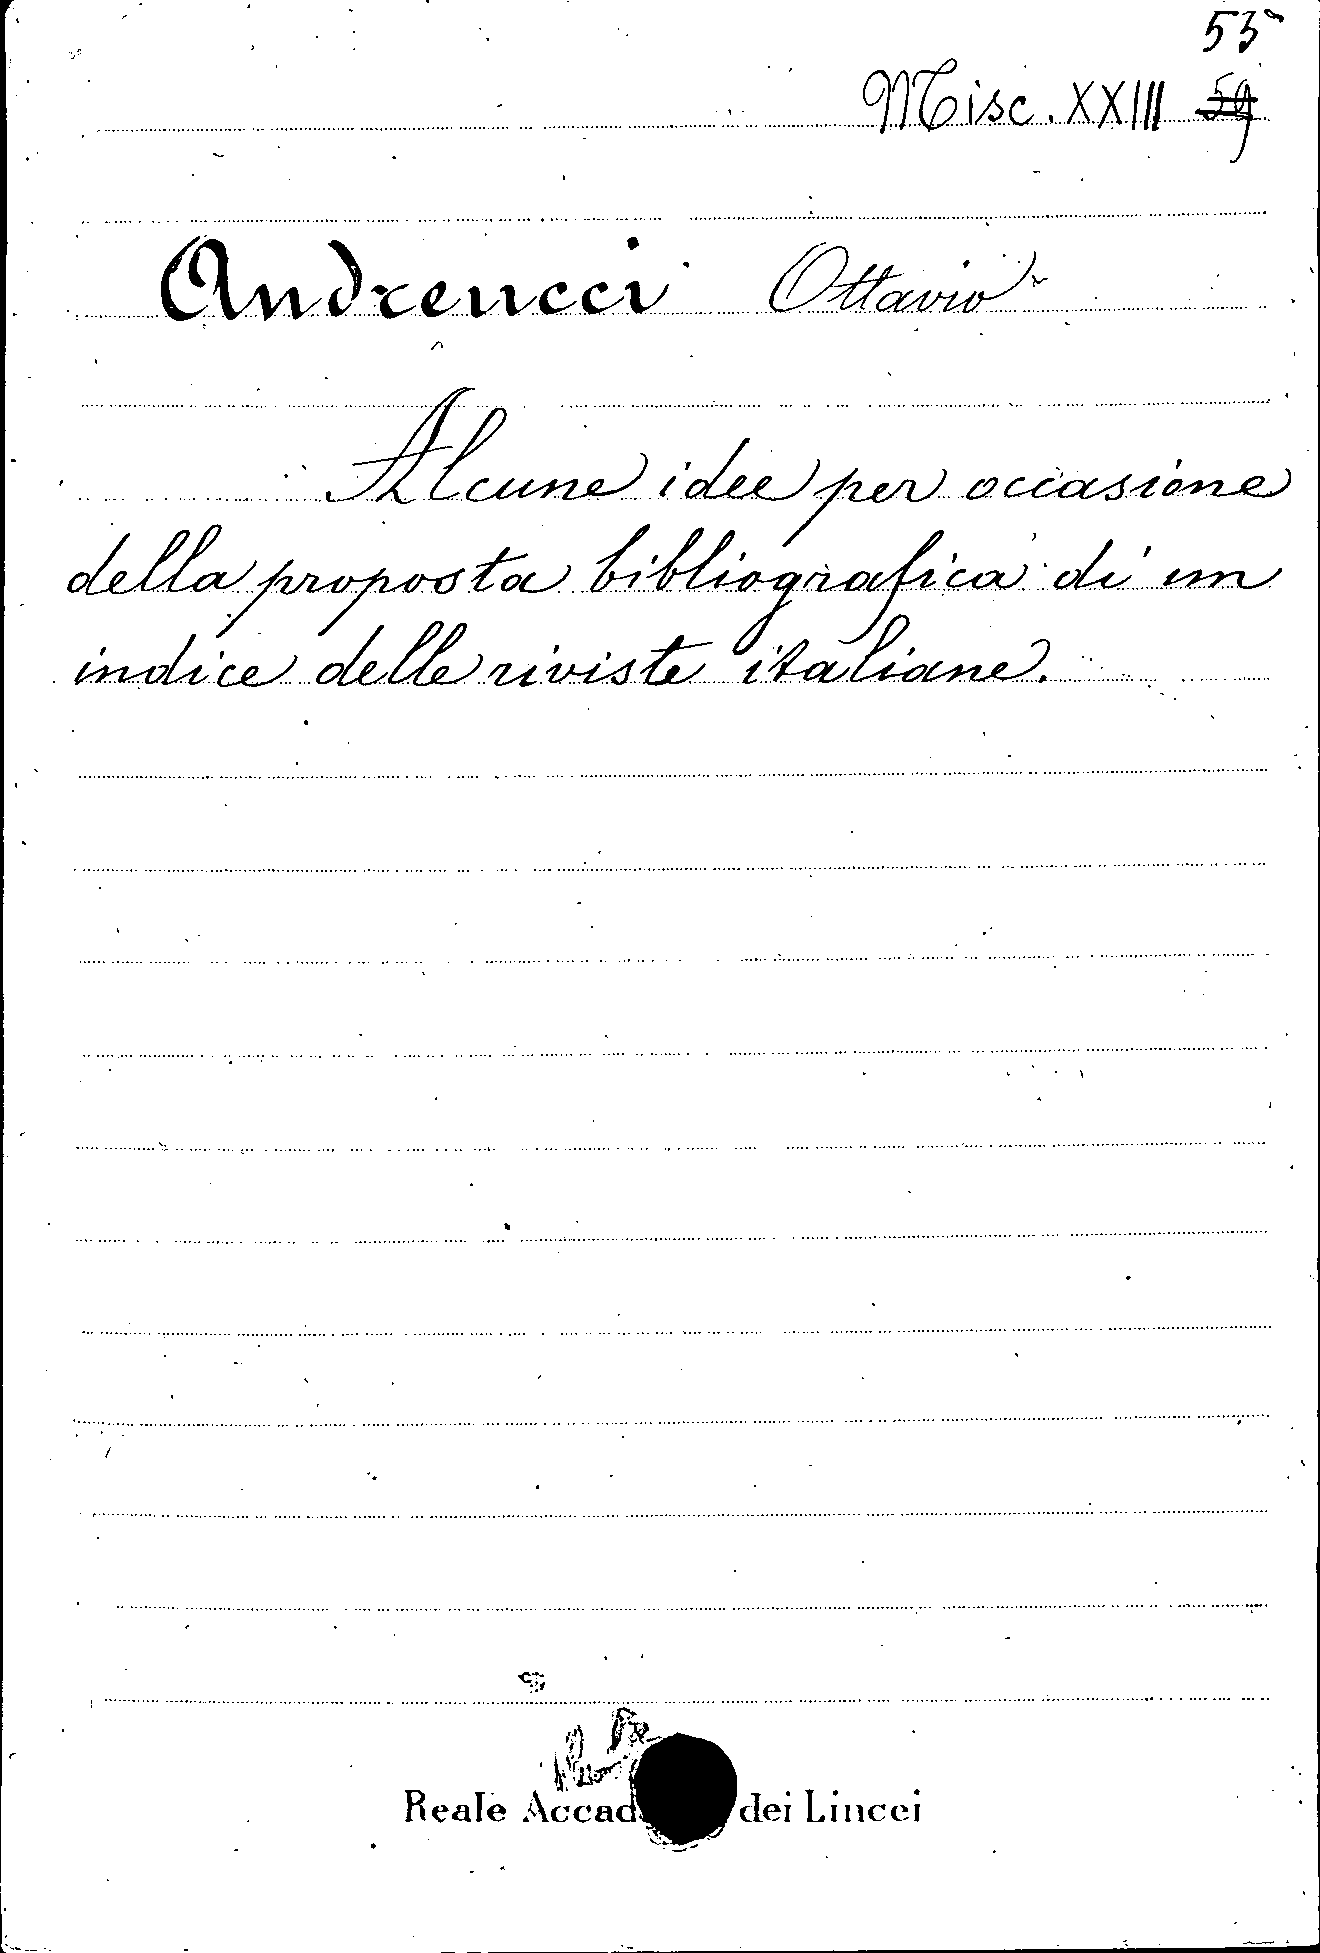 53
Misc. XXIII 59
Andreucci Ottavio
Alcune idee per occasione
della proposta bibliografica di un
indice delle riviste italiane.
Reale Accad dei Lincei